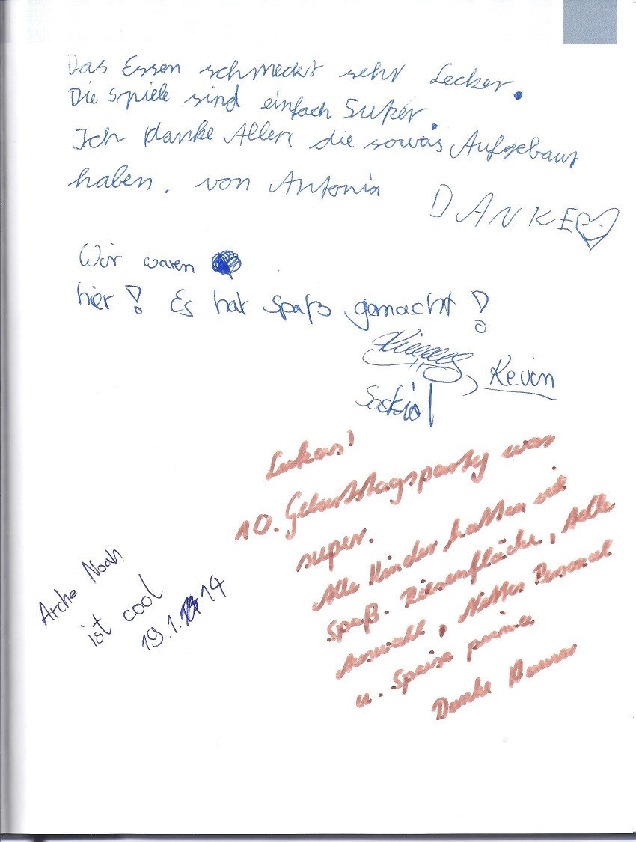 Das Essen schmeckt sehr Lecker.
Die Spiele sind einfach Super.
Ich danke Allen die sowas Aufgebaut
haben. von Antonia DANKE
Wir waren
hier! Es hat Spaß gemacht!
Kevin
Lukas'
10. Geburtstagsparty war
super.
Alle Kinder hatten viel
Spaß. Riesenfläche, tolle
Auswahl, Nettes Personal
u. Speise prima
Danke
Arche Noah
ist cool
19.1.14